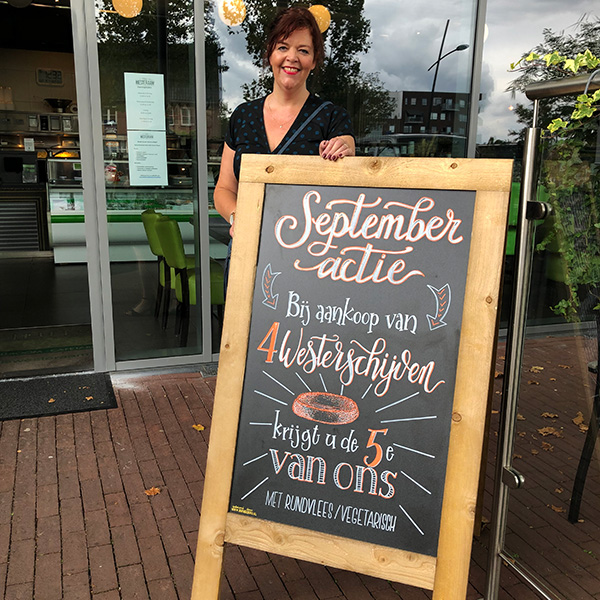 September
actie
Bij aankoop van
4 Westerschijven
krijgt u de 5e
van ons
MET RUNDVLEES/VEGETARISCH